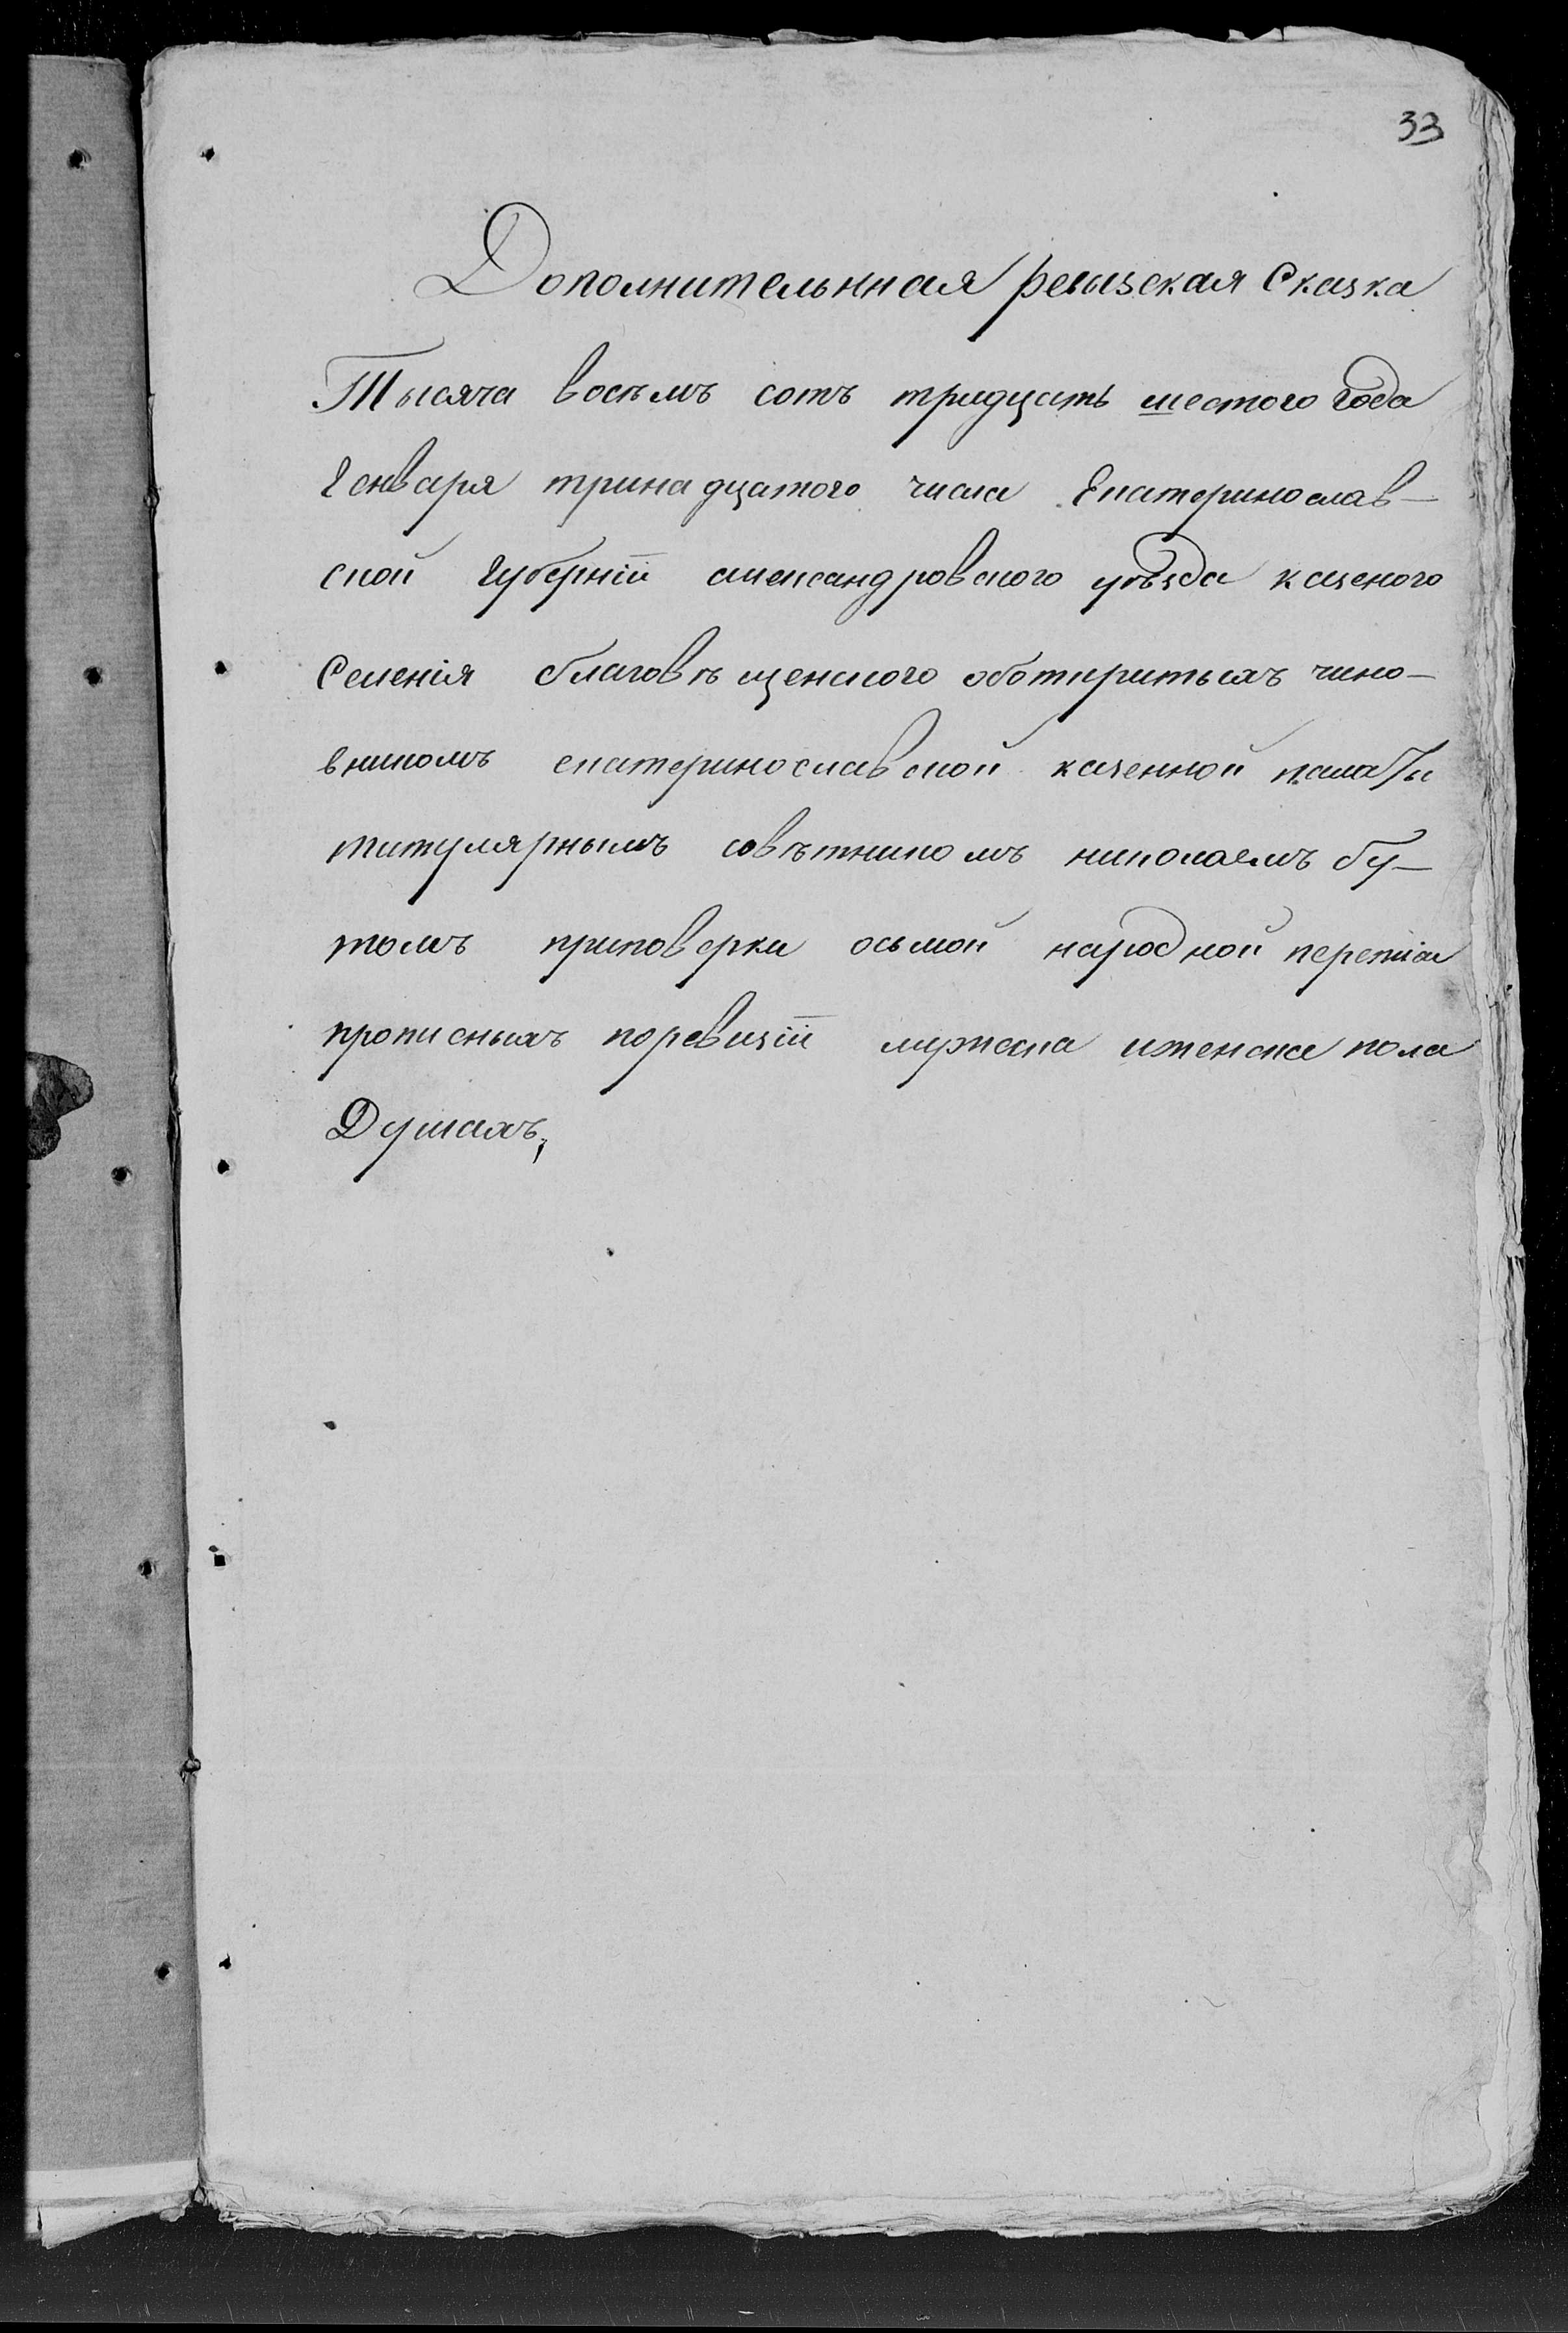 33
Дополнительнная ревызская Сказка
Тысяча восѣмъ сотъ тридцать шестого года
Генваря тринадцатого числа Екатеринослав-
ской губерніи александровского уѣзда казеного
Селенія благовѣщенского оботкритыхъ чино-
вникомъ екатеринославской казенной палаты
титулярнымъ совѣтникомъ николаемъ бу-
томъ приповерки осьмой народной переписи
прописныхъ поревизіи мужеска иженска пола
Душахъ,